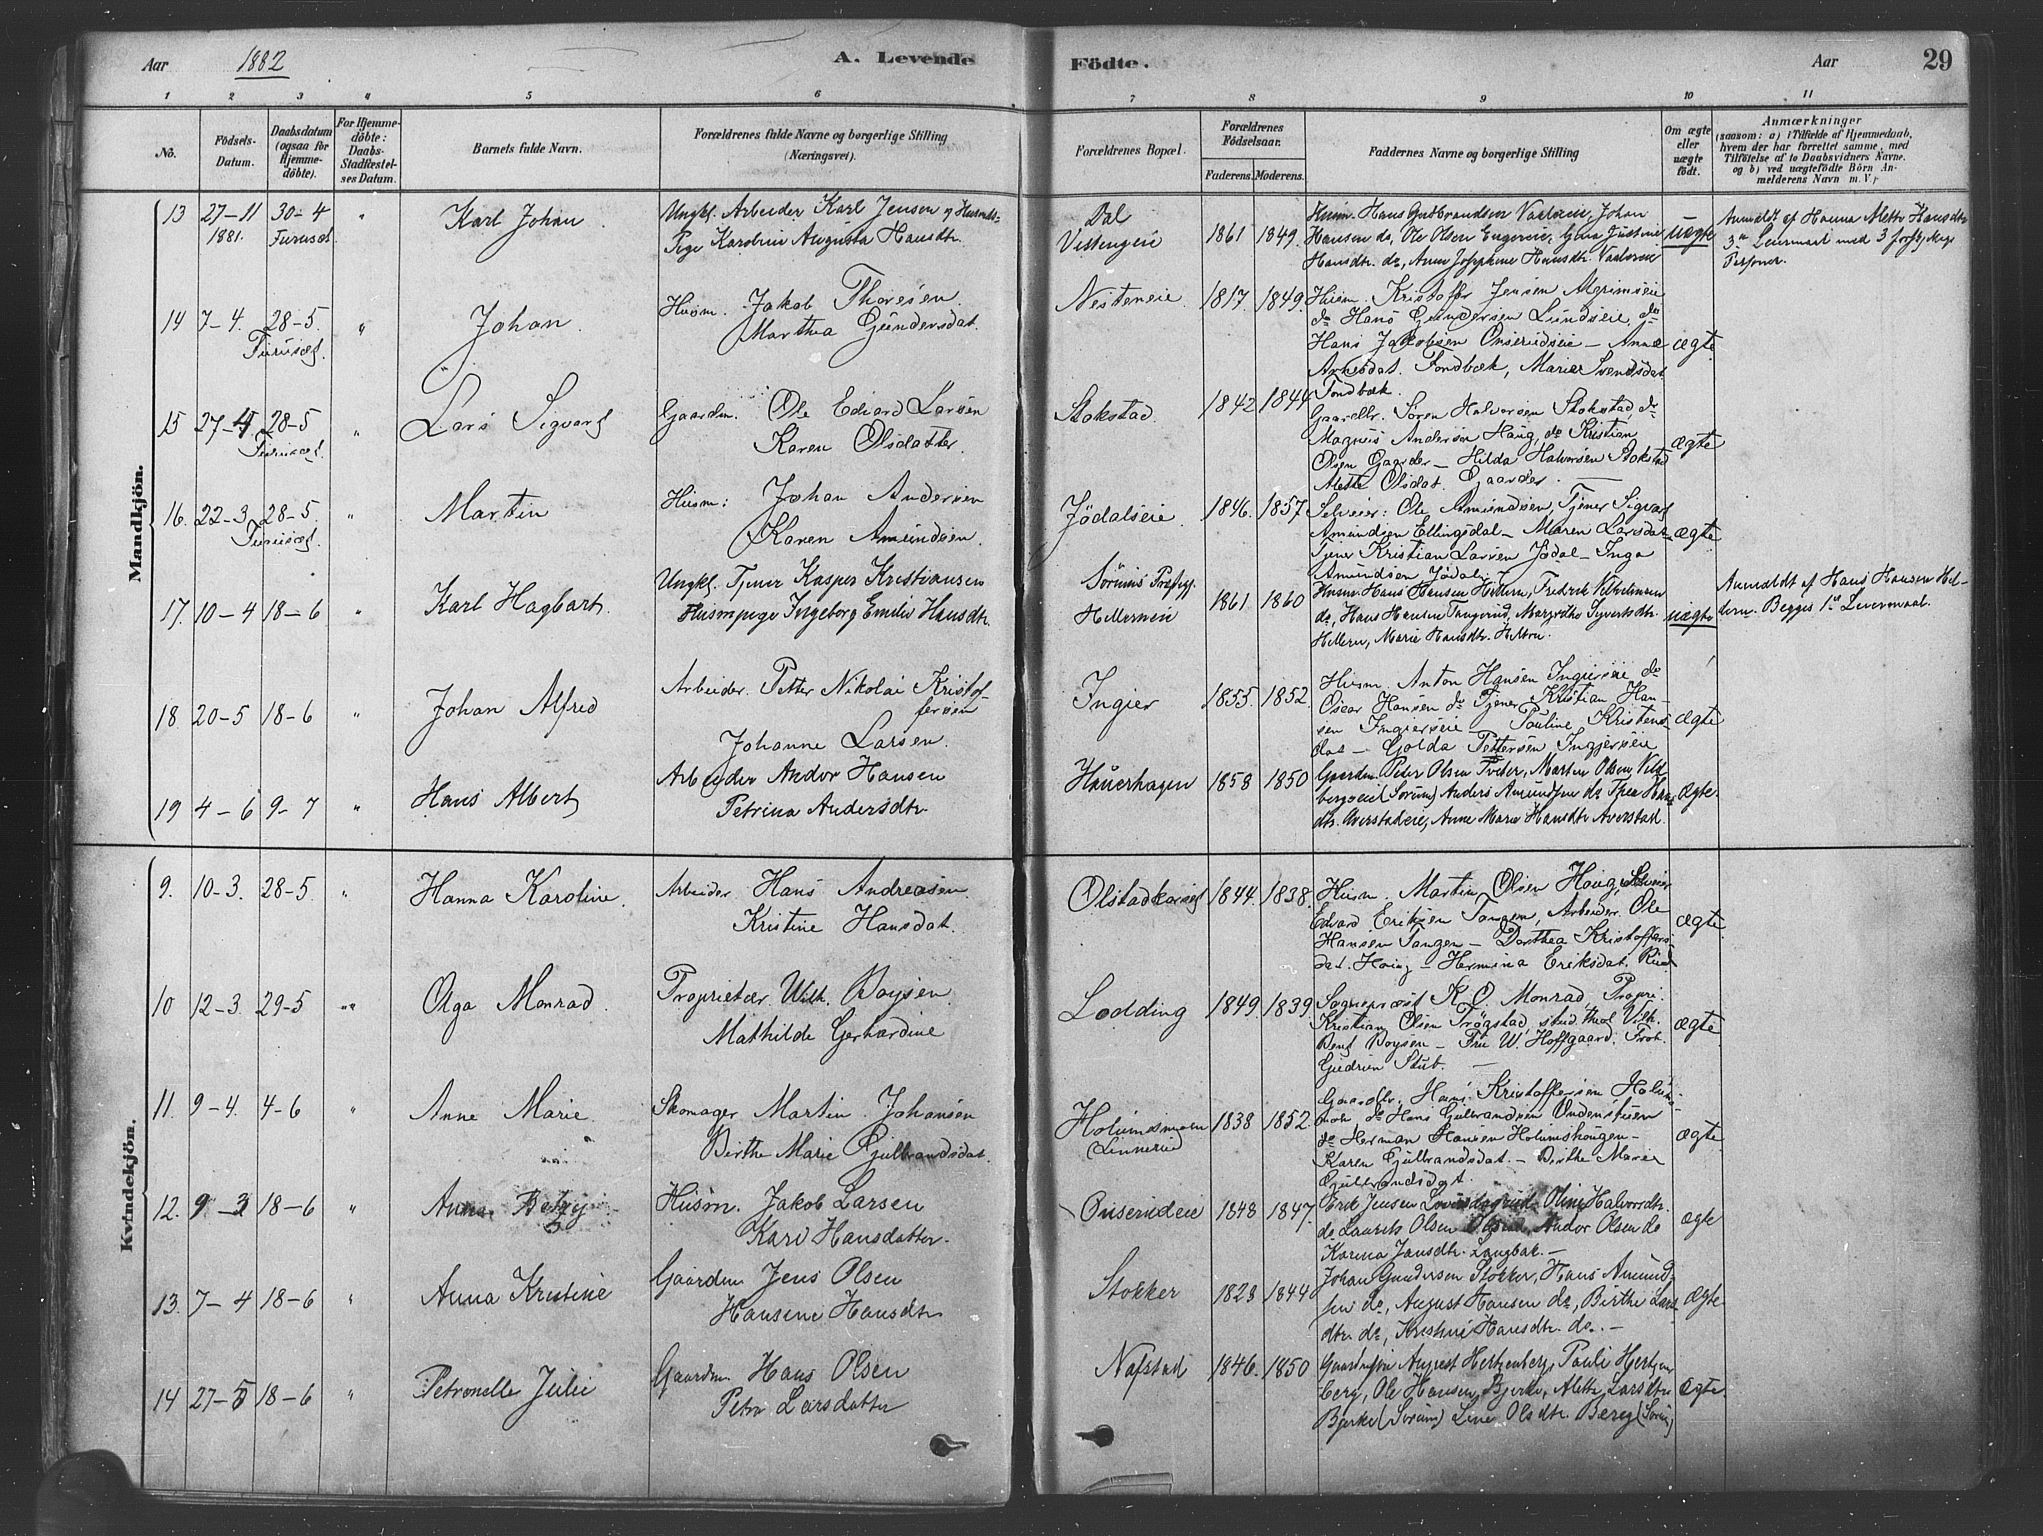 Aar 1882 A. Levende Födte. Aar 29
1 2 3 4 5 6 7 8 9 10 11
No.
Födsels-Datum.
Daabsdatum (ogsaa for Hjemme-döbte).
For Hjemme-döbte: Daabs-Stadfæstel-ses Datum.
Barnets fulde Navn.
Forældrenes fulde Navne og borgerlige Stilling (Næringsvei).
Forældrenes Bopæl.
Forældrenes Födselsaar.
Faderens. Moderens.
Faddernes Navne og borgerlige Stilling
Om ægte eller uægte födt.
Anmærkninger
(saasom: a) i Tilfælde af Hjemmedaab,
hvem der har forrettet samme, med
Tilföielse af to Daabsvidners Navne.
og b) ved uægtefödte Börn An-
melderens Navn m. V.)
Mandkjön.
13 27-11 1881. 30-4 Furuset " Karl Johan
Ungkl. Arbeider Karl Jensen og Husmds-
Pige Karolin Augusta Hansdtr.
Dal
1861 1849.
Husm. Hans Gudbrandsen Johan
Hansen do, Ole Olsen Gina Justine
Hansdtr. do, Anne Josephine Hansdtr.
uægte
Anmeldt af Hanna Mette Hansdtr
3die Leiermaal med 3 forskjellige
Personer.
14 7-4. 28-5. Furuset " Johan.
Husm. Jakob Thoresen.
Martha Gundersdat.
Nesteneie 1817 1849.
Husm. Kristoffer Jensen Algrimseie
do Hans Gundersen Lundseie, do
Hans Jakobsen Onserudseie - Anne
Fondbæk, Marie Svendsdat
Fondbæk.
ægte
15 27-4 28-5 Furuset " Lars Sigvart
Gaardm. Ole Edvard Larsen
Karen Olsdatter.
Stokstad. 1842 1844
Gaardbr. Søren Halvorsen Stokstad, do
Magnus Andersen Haug, do Kristian
Olsen Gaarder - Hilda Halvorsen Stokstad
Mette Olsdat. Gaarder.
ægte
16. 22-3 28-5. Furuset. " Martin
Husm: Johan Andersen
Karen Amundsen.
Jödalseie. 1846. 1857
Selveier: Ole Amundsen, Tjener Sigvart
Amundsen Ellingsdal - Maren Larsdat
Tjener Kristian Larsen Jödal - Inga
Amundsen Jödal. -
ægte
17. 10-4 18-6 " Karl Hagbart.
Ungkl. Tjener Kasper Kristiansen
Husmpige Ingeborg Emilie Hansdtr.
Sörums Præstgj.
Hellerneie
1861 1860
Husm. Hans Hansen Hellern, Fredrik Vilhelmsen
do, Hans Hansen Tangerud, Margrethe Syvertsdtr.
Hellern, Marie Hansdtr. Hellern.
uægte
Anmeldt af Hans Hansen Hel-
lern. Begges 1ste Leiermaal.
18. 20-5 18-6 " Johan Alfred
Arbeider. Petter Nikolai Kristof-
fersen
Johanne Larsen.
Ingier 1855. 1852.
Husm. Anton Hansen Ingierseie do
Oscar Hansen do Tjener Kristian Han-
sen Ingierseie - Pauline Kristens-
dat - Golda Pettersen Ingjerseie
ægte
19 4-6 9-7 " Hans Albert
Arbeider Andor Hansen
Petrina Andersdtr
Hauerhagen 1858 1850
Gaardm. Peter Olsen Tveter, Marten Olsen Vild-
bergseie (Sörum) Anders Amundsen do Thea Han-
dtr. Averstadeie, Anne Marie Hansdtr Averstad.
ægte.
Kvindekjön.
9. 10-3. 28-5. " Hanna Karoline.
Arbeider Hans Andreasen
Kristine Hansdat.
1844. 1838.
Husm. Martin Olsen Haug, Selveier
Edvard Eriksen Tangen, Arbeider. Ole
Hansen Tangen - Dorthea Kristoffers-
dat. Haug - Hermina Eriksdat. Rud
ægte
10 12-3. 29-5 " Olga Monrad.
Proprietær. Wilh. Boysen.
Mathilde Gerhardine
Lodding 1849. 1839.
Sogneprest K. O. Monrad, Propri.
Kristian Olsen Trögstad, stud. theol Vilh.
Bent Boysen - Fru W. Hoffgaard. Frøk.
Gudrun Stub. -
ægte
11. 9-4. 4-6 " Anne Marie.
Skomager Martin Johansen
Birthe Marie Gulbrandsdat.
Holumsmoen
Linnerud
1838 1852.
Gaardbr. Hans Kristoffersen Holums-
moen do Hans Gulbrandsen Undensteien
do Herman Hansen Holumshaugen -
Karen Gulbrandsdat. - Birthe Marie
Gulbrandsdat.
ægte
12. 9-3 18-6 " Anna Betzy
Husm. Jakob Larsen
Kari Hansdatter.
Onserudeie 1848 1847.
Erik Jensen Oline Halvorsdtr.
do Laurits Olsen Andor Olsen do
Karina Jansdtr. Langbak. -
ægte
13. 7-4 18-6 " Anna Kristine
Gaardm Jens Olsen
Hansine Hansdtr
Stokker 1823 1844
Johan Gundersen Stokker, Hans Amund-
sen do, August Hansen do, Birthe Lars-
dtr. do, Kristine Hansdtr. do. -
ægte
14 27-5 18-6 " Petronelle Julie
Gaardm Hans Olsen
Petra Larsdatter
Nafstad 1846. 1850
August Hertzenberg, Pauli Hertzen-
berg, Ole Hansen Bjerke, Alette Larsdtr
Bjerke (Sörum) Line Olsdtr. Berg (Sörum)
ægte